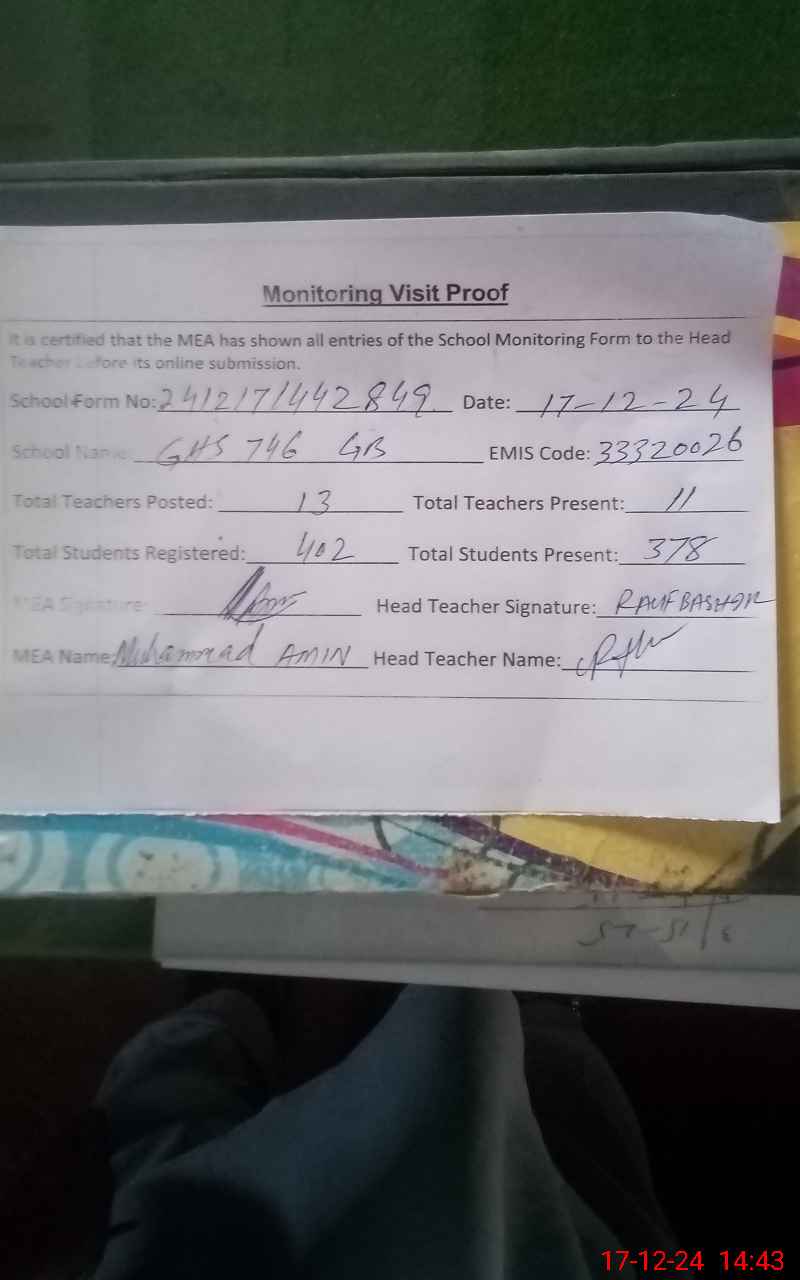 Monitoring Visit Proof
It is certified that the MEA has shown all entries of the School Monitoring Form to the Head
Teacher before its online submission.
School Form No: 241217/442849 Date: 17-12-24
School Name: GHS 746 GB EMIS Code: 33320026
Total Teachers Posted: 13 Total Teachers Present: 11
Total Students Registered: 402 Total Students Present: 378
MEA Signature: Head Teacher Signature: RAUF BASHIR
MEA Name: Muhammad AMIN Head Teacher Name:
17-12-24 14:43